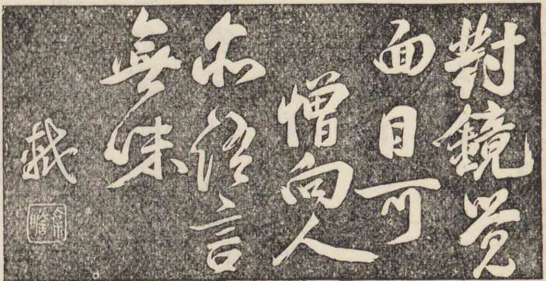 對鏡覺
面目可
憎向人
亦語言
無味
軾